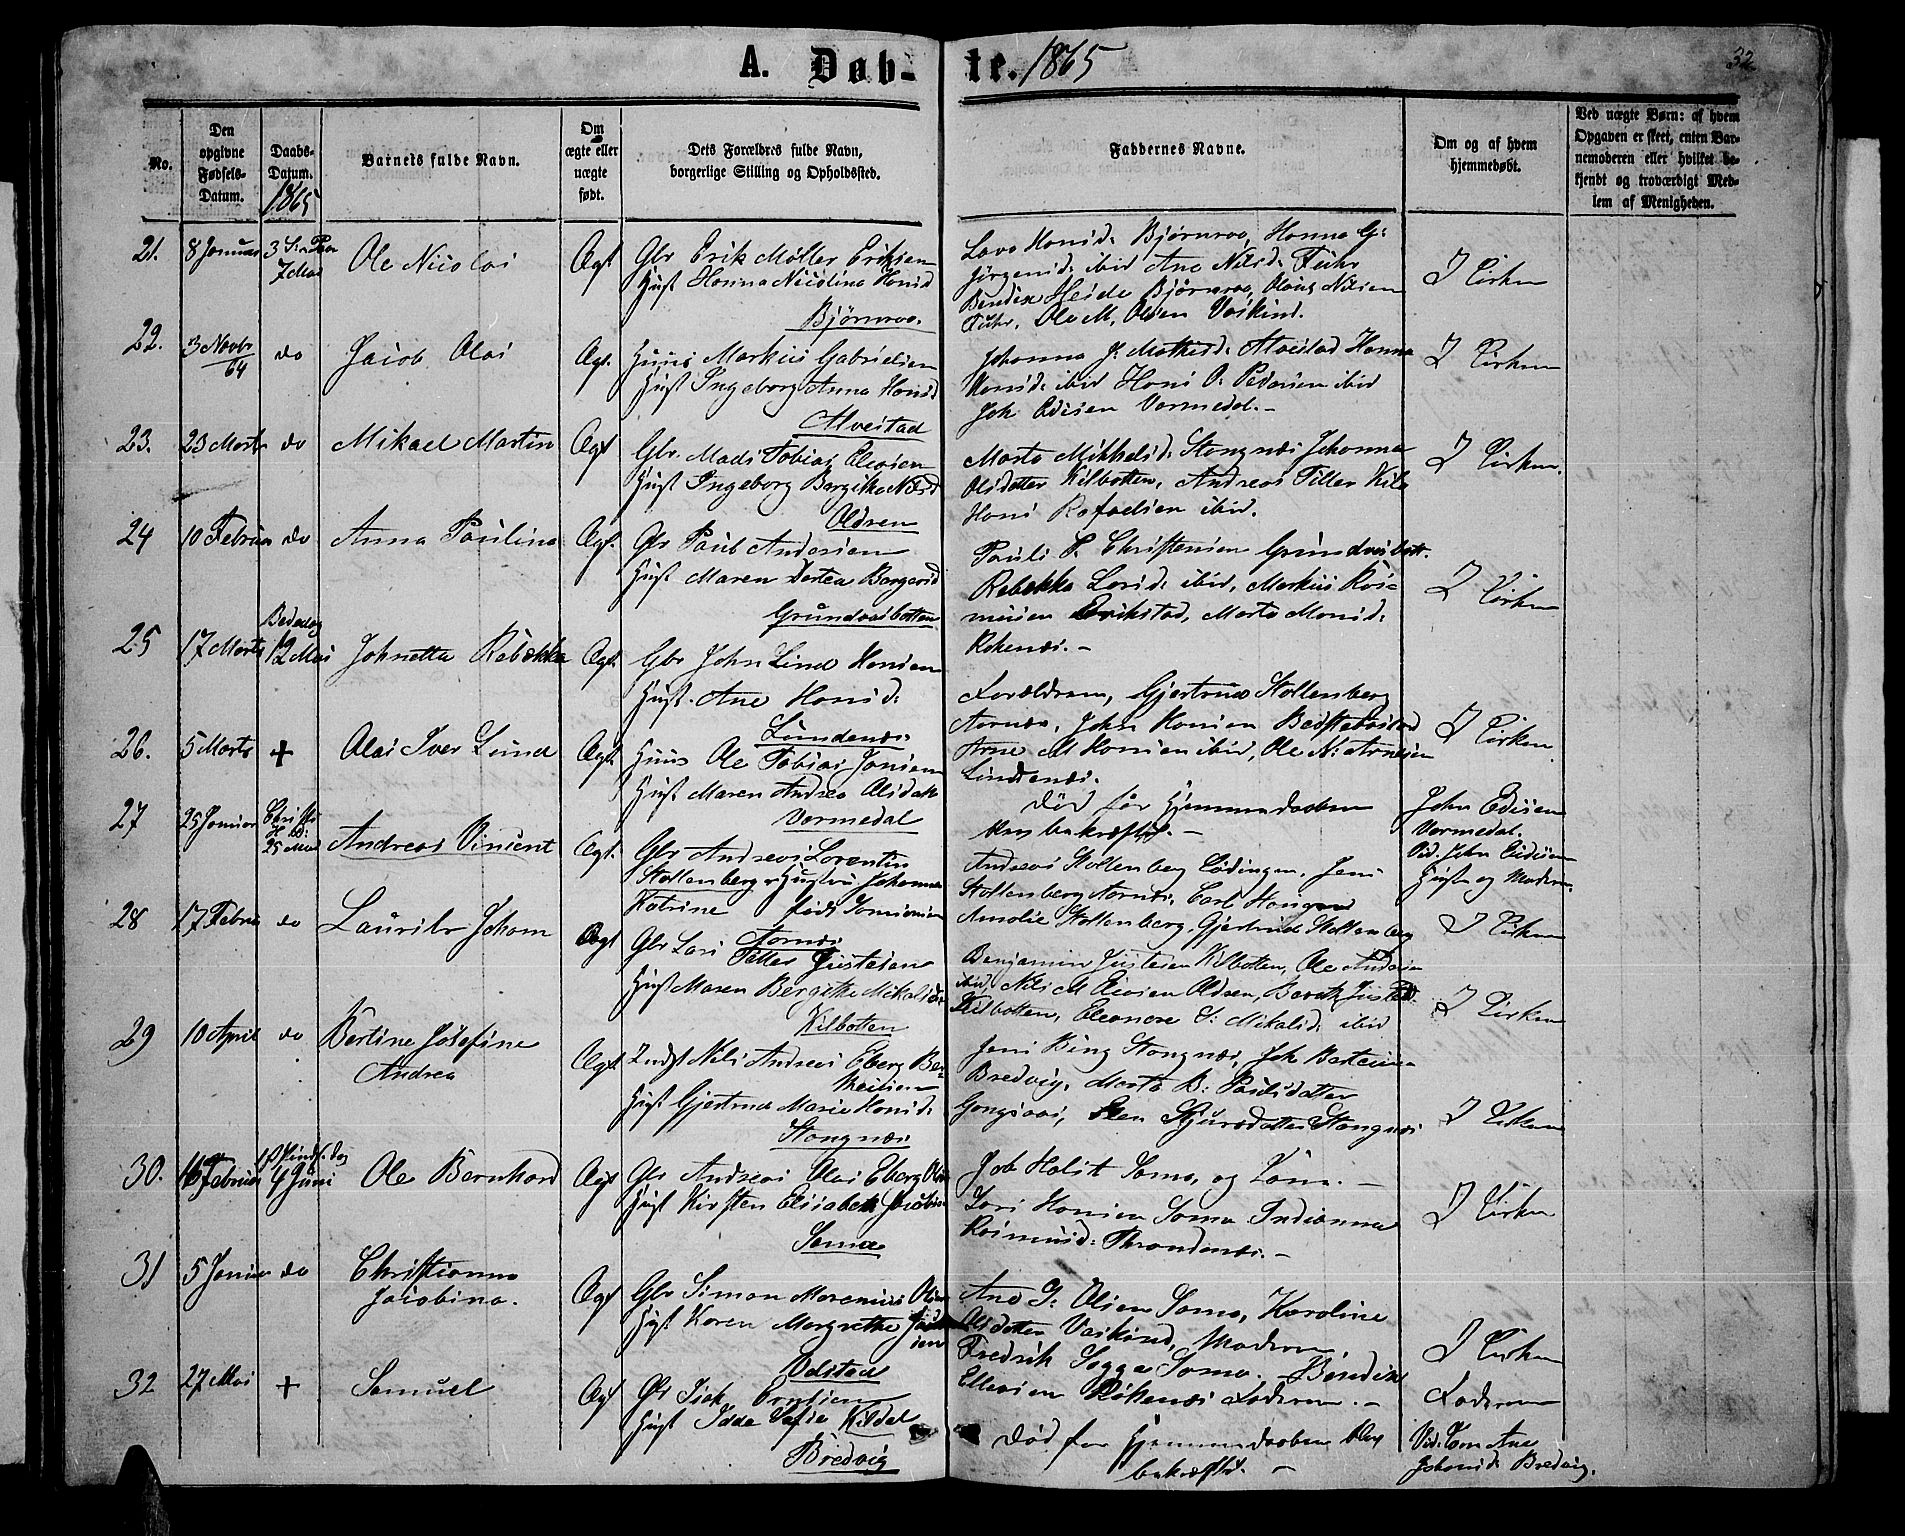 A. Døb-te. 1865
32
No.
Den opgivne Fødsels-Datum.
Daabs-Datum.
1865
Barnets fulde Navn.
Om ægte eller uægte født.
Dets Forældres fulde Navn, borgerlige Stilling og Opholdssted.
Faddernes Navne.
Om og af hvem hjemmedøbt.
Ved uægte Børn: af hvem Opgaven er skeet, enten Barnemoderen eller hvilket bekjendt og troværdigt Medlem af Menigheden.
21. 8 Januar
7 Mai
Ole Nicolai
Ægt
Gbr Erik Møller Eriksen
Hust Hanna Nicolina Hansd
Bjørnraa.
Lava Hansd. Bjørnraa, Hanna G.
Jørgensd. ibid Ane Nilsd. Fuhr
Bendix Heide Bjørnraa, Olaus Nilsen
Fuhr. Ole M. Olsen Vaskind.
I Kirken
22. 3 Novbr 64
do
Jacob Olai
Ægt.
Huus Markus Gabrielsen
Hust Ingeborg Anna Hansd
Alvestad
Johanna J. Mathisd. Alvestad Hanna
Hansd. ibid Hans O. Pedersen ibid
Joh Edisen Vormedal.-
I Kirken
23. 23 Marts
do
Mikael Martin
Ægt
Gbr. Mads Tobias Eliasen
Hust Ingeborg Bergitha Nilsd
Oldren
Marta Mikkelsd. Stangnæs Johanna
Olsdatter Kilbotten, Andreas Tiller Kilb
Hans Rafaelsen ibid.
I Kirken.
24 10 Februar
do
Anna Paulina
Ægt.
Gbr Paul Andersen
Hust Maren Dortea Bergersd
Grundvasbotten
Pauli P. Christensen Grundvasbott.
Rebekka Larsd. ibid, Markus Ras-
musen Erikstad, Marta Monsd.
Røkenæs.-
I Kirken
25 17 Marts
Bededag
12 Mai
Johnetta Rebekka
Ægt
Gbr John Lind Hansen
Hust. Ane Hansd.
Lundenæs.
Forældrene, Gjertrud Stoltenberg
Aarnæs, John Hansen
Arne M Hansen ibid, Ole N. Arnesen
Lundenæs.
I Kirken
26. 5 Marts
+
Olai Iver Lund
Ægt
Huus Ole Tobias Jonsen
Hust Maren Andrea Olsdatt
Vormedal
Død før Hjemmedaaben
blev bekræftet.-
John Edisen
Vormedal.
Vid. John Edisen
Hust og Moderen
27 25 Januar
Christi
25 Mai
Andreas Vincent
Ægt.
Gbr Andreas Lorentin
Stoltenberg & Hustru Johanna
Katrine født
Aarnæs
Andreas Stoltenberg Lødingen, Jens
Stoltenberg Aarnæs, Carl
Amalie Stoltenberg, Gjertrude Stoltenberg
I Kirken
28 17 Febru
do
Laurits Johan
Ægt
Gbr Lars Peller Justesen
Hust Maren Bergitte Mikalsd.
Kilbotten
Benjamin Justesen Kilbotten, Ole Andersen
ibid, Nils M Eliasen Oldren, Berith Justesd.
Kilbotten, Eleonore S. Mikalsd. ibid
I Kirken
29 10 April
do
Bertine Josefine
Andrea
Ægt
Indst Nils Andreas Eberg Be-
Hust Gjertrud Marie Hansd.
Stangnæs
Jens Bing Stangnæs, Joh
Bredvig, Marta B. Paulsdatter
Gangsaas, Elen Sjursdatter Stangnæs
I Kirken
30. 16 Februar
1 Pindsedag
4 Juni
Ole Bernhard
Ægt
Gbr Andreas Olai Eberg Olsen
Hust Kirsten Elisabeth Jacobsen
Sama
Job Holst Sama, og Kone.-
Lars Hansen Sama Indianna
Rasmusd. Throndenæs.-
I Kirken
31 5 Januar
do
Christianna
Jacobina.
Ægt
Gbr Simon Marenius Olsen
Hust Karen Margrethe
Udstad
Ane J. Olsen Sama, Karoline
Olsdatter Vaskind, Moderen,
Fredrik Sogga Sama. Bendix
Eliasen Røkenæs Faderen.-
I Kirken
32 27 Mai
+
Samuel
Ægt
Gbr Isak
Hust Idda Sofie Kildal
Bredvig
Død før Hjemmedaaben blev
bekræftet.-
Faderen
Vid. Ane
Johansd. Bredvig.